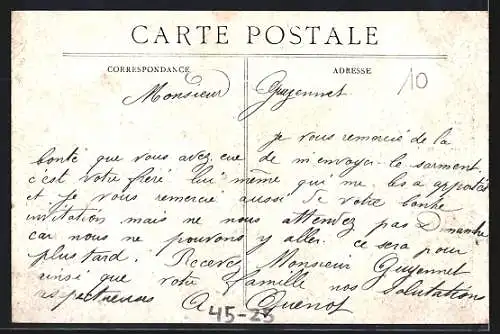 CARTE POSTALE
CORRESPONDANCE
ADRESSE
10
Monsieur Guyennet
je vous remercie de la
bonté que vous avez eue de m'envoyer le sarment
c'est votre frère lui même qui me les a apportés
et je vous remercie aussi de votre bonne
invitation mais ne nous attendez pas Dimanche
car nous ne pouvons y aller. ce sera pour
plus tard. Recevez Monsieur Guyennet
ainsi que votre famille nos Salutations
respectueuses A Quenot
45-25